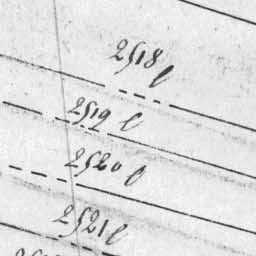 2518 l
2519 l
2520 l
2521 l